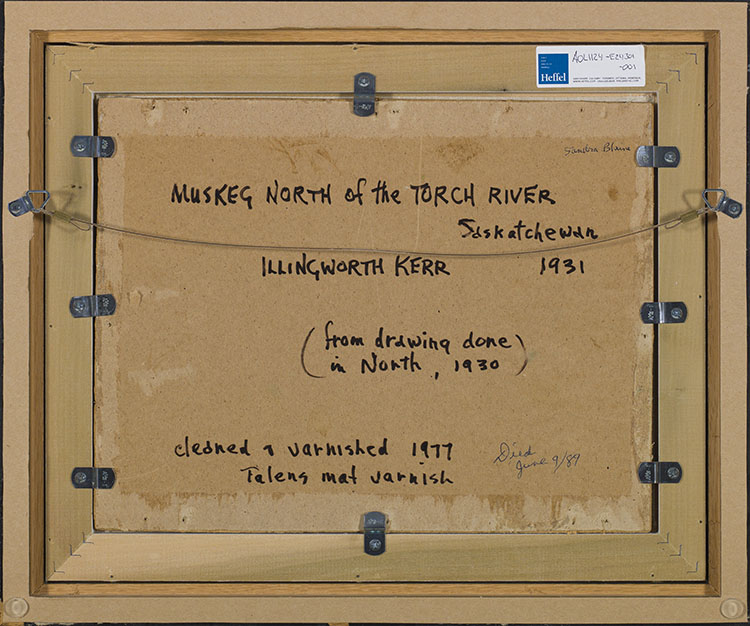 Heffel
AOL1124-E24304
-001
MUSKEG NORTH of the TORCH RIVER
Saskatchewan
ILLINGWORTH KERR 1931
(from drawing done
in North, 1930)
cleaned & varnished 1977
Talens mat varnish
Died
June 9/89